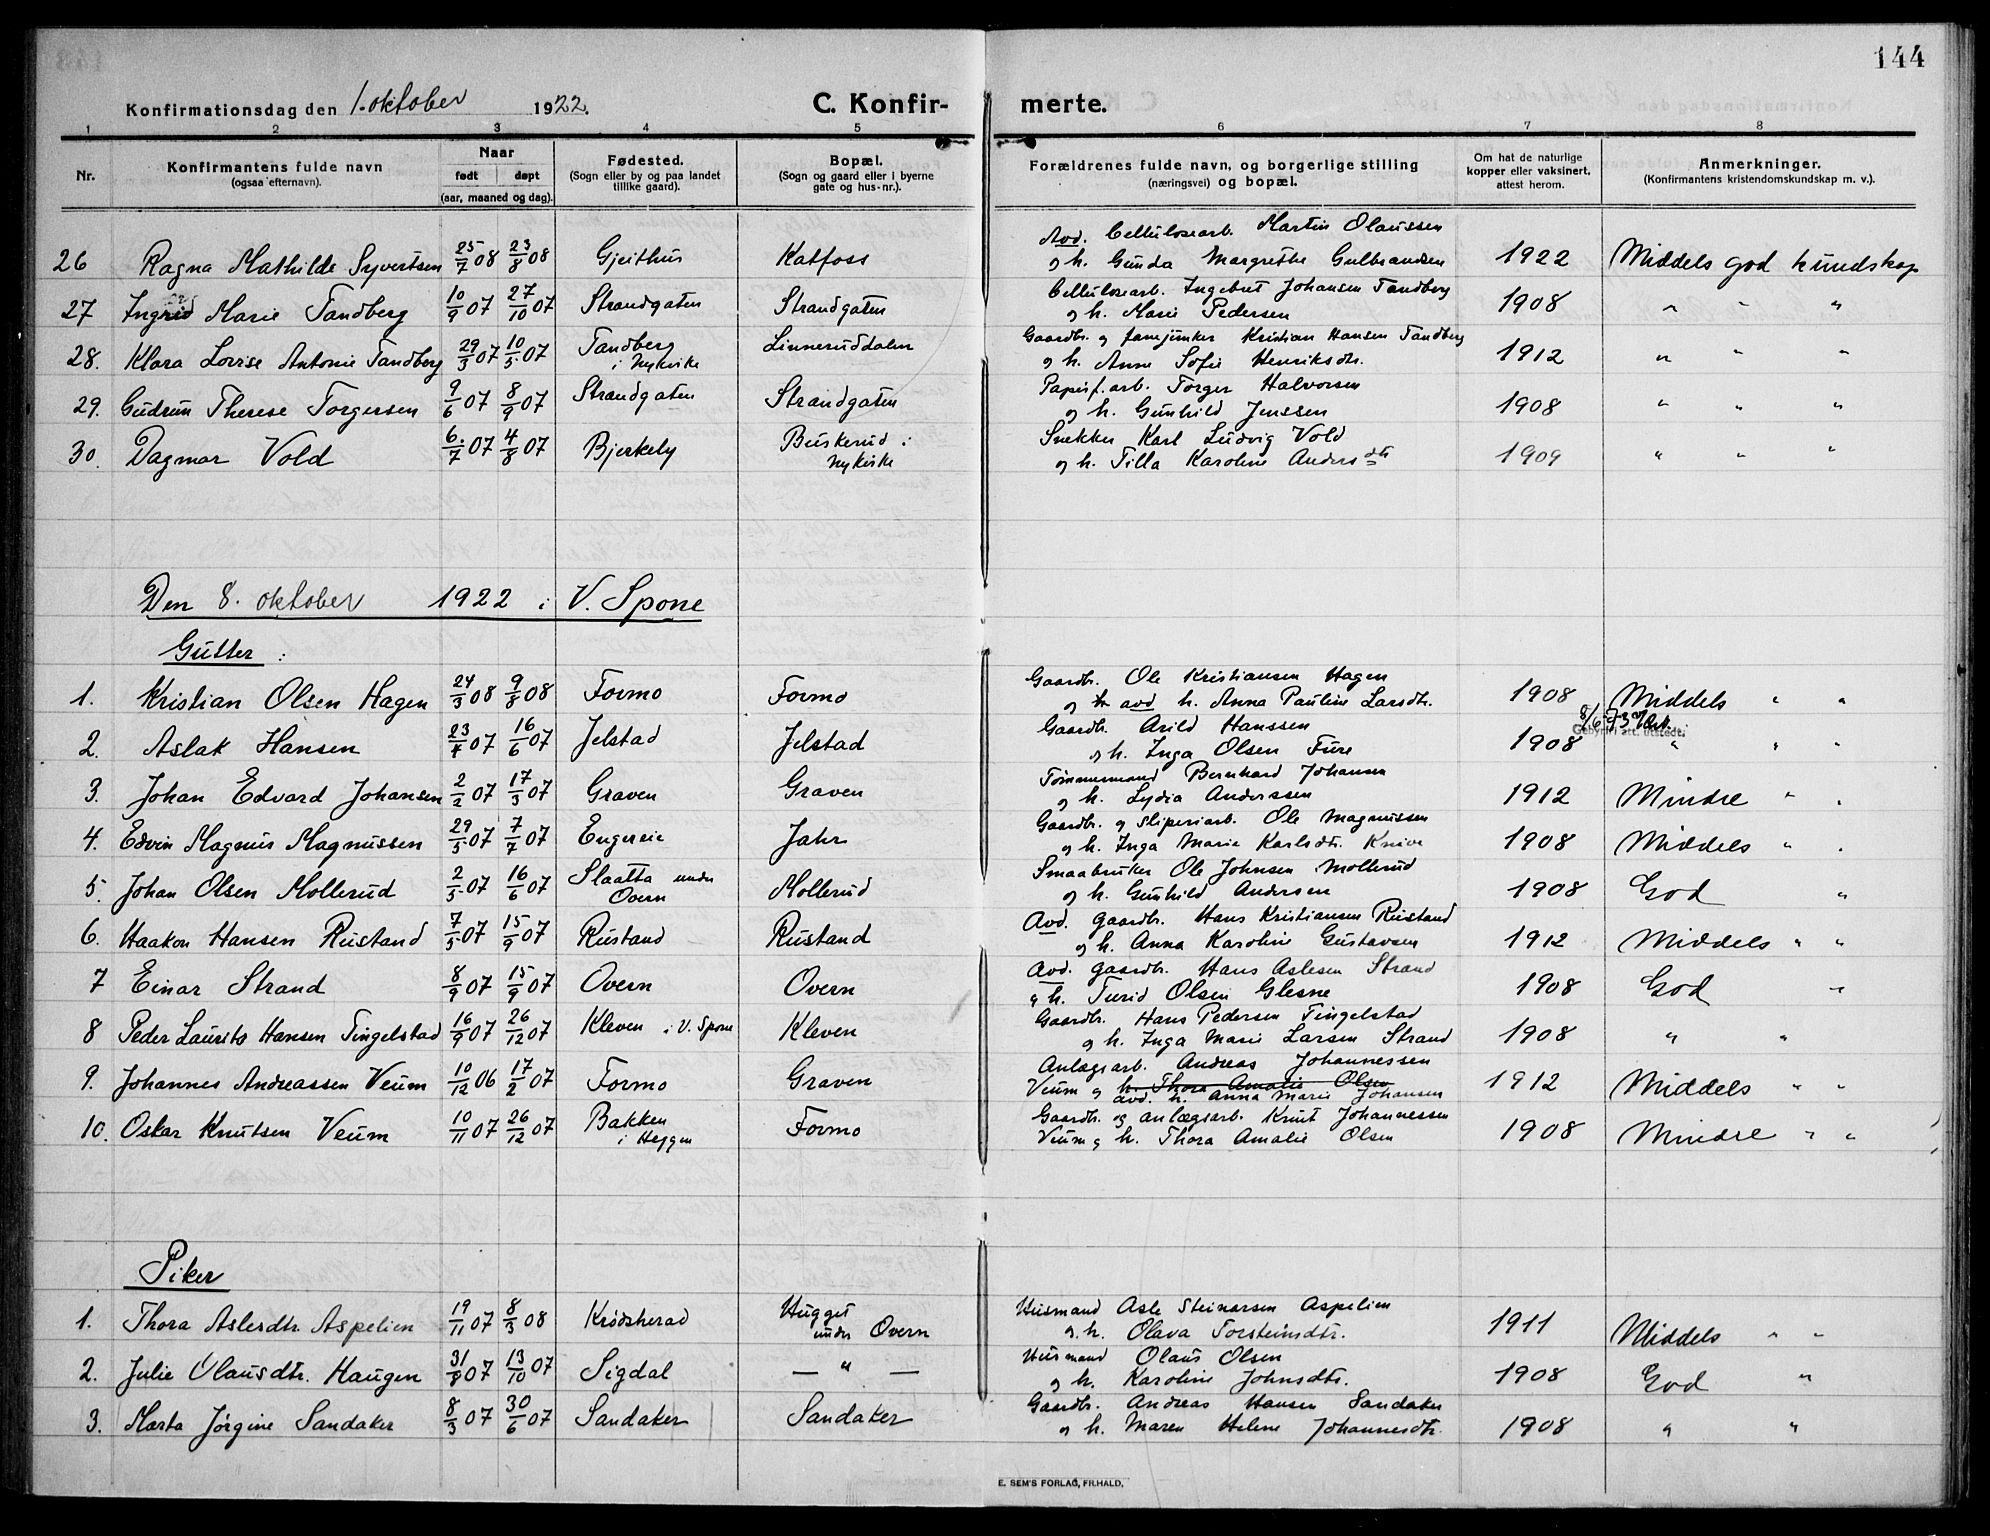 144
Konfirmationsdag den 1. oktober 1922. C. Konfir- merte.
1 2 3 4 5 6 7 8
Nr. Konfirmantens fulde navn (ogsaa efternavn). Naar født døpt (aar, maaned og dag). Fødested. (Sogn eller by og paa landet tillike gaard). Bopæl. (Sogn og gaard eller i byerne gate og hus-nr.). Forældrenes fulde navn, og borgerlige stilling (næringsvei) og bopæl. Om hat de naturlige kopper eller vaksinert, attest herom. Anmerkninger. (Konfirmantens kristendomskundskap m. v.).
26 Ragna Mathilde Syvertsen 25/7 08 23/8 08 Gjeithus Katfoss Avd. Cellulosearb. Martin Olaussen
og h. Gunda Margrethe Gulbrandsen 1922 Middels god kundskap
27 Ingrid Marie Tandberg 10/9 07 27/10 07 Strandgaten Strandgaten Cellulosearb. Ingebret Johansen Tandberg
og h. Marie Pedersen 1908 " " "
28. Klara Lovise Antonie Tandberg 29/3 07 10/5 07 Tandberg i Nykirke Linneruddalen Gaardbr. og fanejunker Kristian Hansen Tandberg
og h. Anne Sofie Henriksdtr. 1912 " " "
29. Gudrun Therese Torgersen 9/6 07 8/9 07 Strandgaten Strandgaten Papirf.arb. Torger Halvorsen
og h. Gunhild Jenssen 1908 " " "
30. Dagmar Vold 6./7 07 4/8 07 Bjerkely Buskerud i Nykirke Snekker Karl Ludvig Vold
og h. Tilla Karoline Andersdtr 1909 " " "
Den 8. oktober 1922 i V. Spone
Gutter :
1. Kristian Olsen Hagen 24/3 08 9/8 08 Formo Formo Gaardbr. Ole Kristiansen Hagen
og avd h. Anna Pauline Larsdtr. 1908 Middels " "
2. Aslak Hansen 23/4 07 16/6 07 Jelstad Jelstad Gaardbr. Arild Hanssen
og h. Inga Olsen Fure 1908 8/6-73 Gebyrfri att. utstedt. " " "
3. Johan Edvard Johansen 2/2 07 17/3 07 Graven Graven Tømmermand Bernhard Johansen
og h. Lydia Anderssen 1912 Mindre " "
4. Edvin Magnus Magnussen 29/5 07 7/7 07 Engereie Jahr Gaardbr. og sliperiarb. Ole Magnussen
og h. Inga Marie Karlsdtr. Knive 1908 Middels " "
5. Johan Olsen Mollerud 2/5 07 16/6 07 Slaatta under Overn Mollerud Smaabruker Ole Johnsen Mollerud
og h. Gunhild Andersen 1908 God "
6. Haakon Hansen Rustand 7/5 07 15/9 07 Rustand Rustand Avd. gaardbr. Hans Kristiansen Rustand
og h. Anna Karoline Gustavsen 1912 Middels " "
7 Einar Strand 8/9 07 15/9 07 Overn Overn Avd. gaardbr. Hans Aslesen Strand
og h. Turid Olsen Glesne 1908 God "
8 Peder Laurits Hansen Tingelstad 16/9 07 26/12 07 Kleven i V. Spone Kleven Gaardbr. Hans Pedersen Tingelstad
og h. Inga Marie Larsen Strand 1908 " "
9. Johannes Andreassen Veum 10/12 06 17/2 07 Formo Graven Anlægsarb. Andreas Johannessen
Veum og h. Thora Amalie Olsen
avd. h. Anna Marie Johansen 1912 Middels " "
10. Oskar Knutsen Veum 10/11 07 26/12 07 Bakken i Heggen Formo Gaardbr. og anlægsarb. Knut Johannessen
Veum og h. Thora Amalie Olsen 1908 Mindre " "
Piker
1. Thora Aslesdtr. Aspelien 19/11 07 8/3 08 Krødsherad Hugget under Overn Husmand Asle Steinarsen Aspelien
og h. Olava Torsteinsdtr. 1911 Middels " "
2. Julie Olausdtr. Haugen 31/8 07 13/10 07 Sigdal — " — Husmand Olaus Olsen
og h. Karoline Johnsdtr. 1908 God "
3. Marta Jørgine Sandaker 8/3 07 30/6 07 Sandaker Sandaker Gaardbr. Andreas Hansen Sandaker
og h. Maren Helene Johannesdtr. 1908 " "
E. SEM'S FORLAG, FR.HALD.